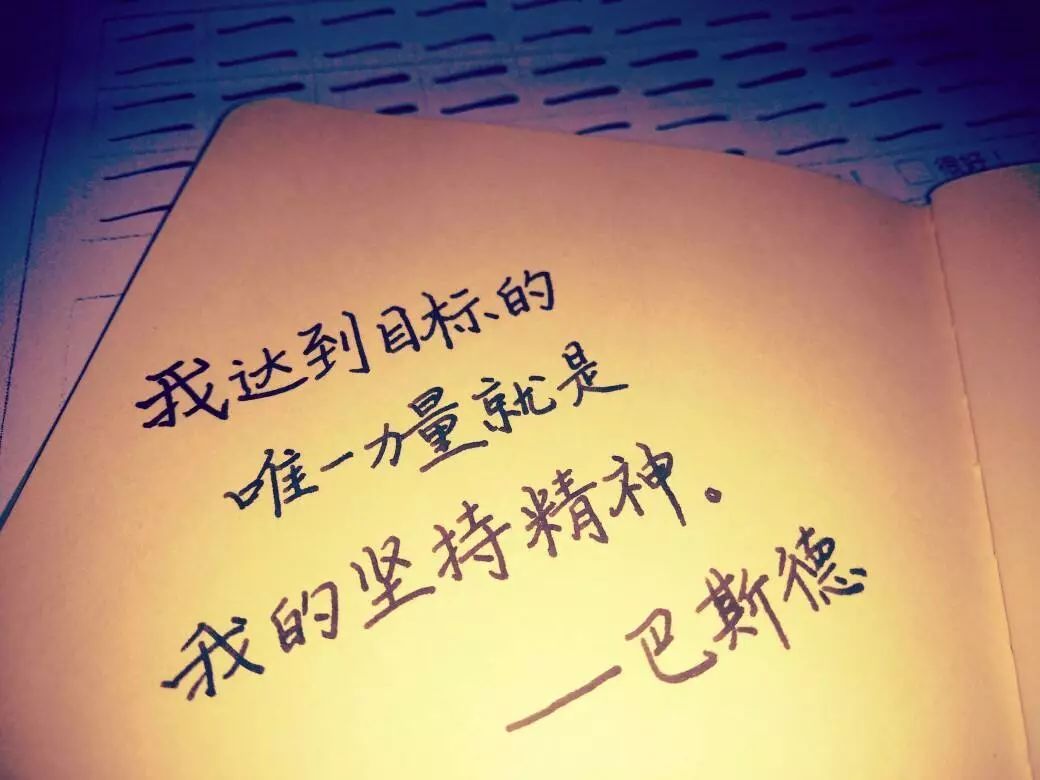 很好！
我达到目标的
唯一力量就是
我的坚持精神。
—巴斯德